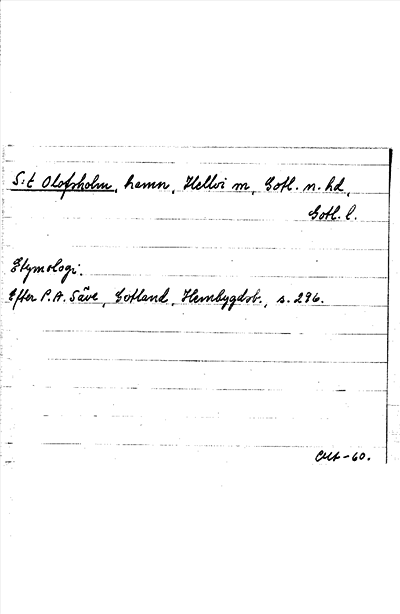 S:t Olofsholm, hamn, Hellvi sn, Gotl. n. hd,
Gotl. l.
Etymologi.
Efter P.A. Säve, Gotland, Hembygdsb., s. 296.
-60.